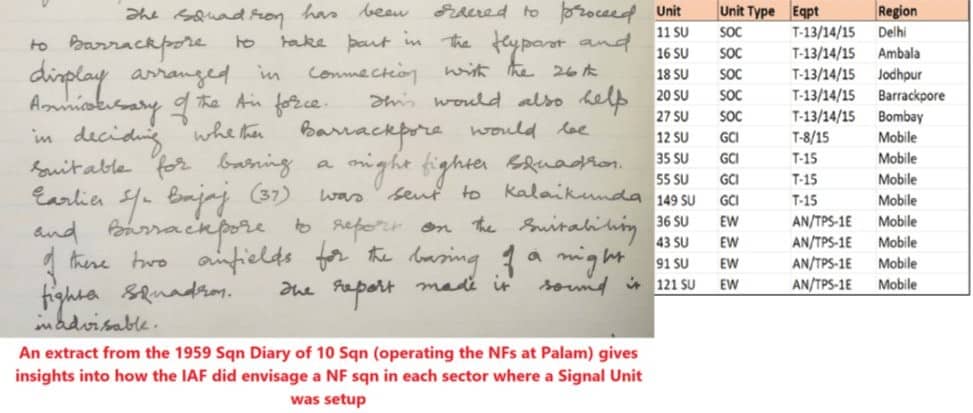 The squadron has been ordered to proceed
to Barrackpore to take part in the flypast and
display arranged in connection with the 26th
Anniversary of the Air force. This would also help
in deciding whether Barrackpore would be
suitable for basing a night fighter squadron.
Earlier S/L Bajaj (37) was sent to Kalaikunda
and Barrackpore to report on the suitability
of these two airfields for the basing of a night
fighter squadron. The report made it sound it
inadvisable.
An extract from the 1959 Sqn Diary of 10 Sqn (operating the NFs at Palam) gives
insights into how the IAF did envisage a NF sqn in each sector where a Signal Unit
was setup
Unit Unit Type Eqpt Region
11 SU SOC T-13/14/15 Delhi
16 SU SOC T-13/14/15 Ambala
18 SU SOC T-13/14/15 Jodhpur
20 SU SOC T-13/14/15 Barrackpore
27 SU SOC T-13/14/15 Bombay
12 SU GCI T-8/15 Mobile
35 SU GCI T-15 Mobile
55 SU GCI T-15 Mobile
149 SU GCI T-15 Mobile
36 SU EW AN/TPS-1E Mobile
43 SU EW AN/TPS-1E Mobile
91 SU EW AN/TPS-1E Mobile
121 SU EW AN/TPS-1E Mobile